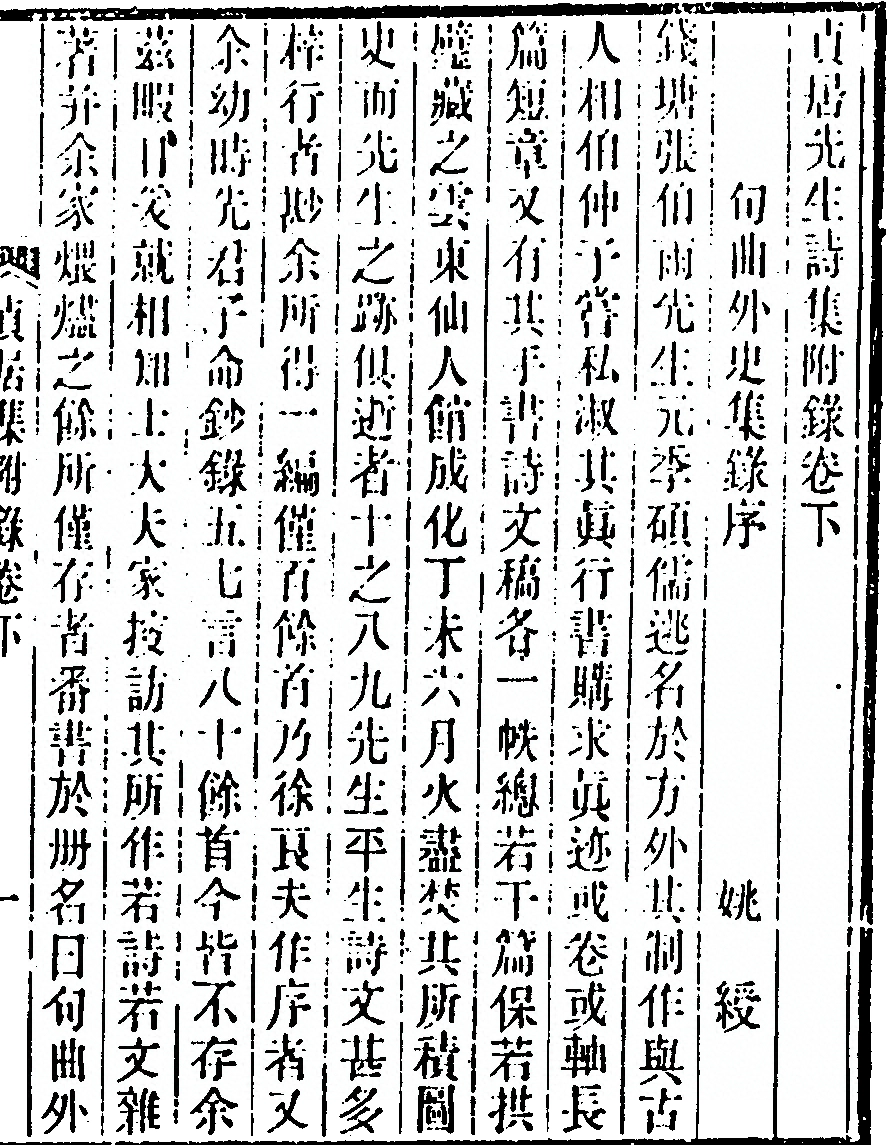 貞居先生詩集附錄卷下
句曲外史集錄序 姚 綬
錢塘張伯雨先生元季碩儒逃名於方外其制作與古
人相伯仲予嘗私淑其眞行書購求眞迹或卷或軸長
篇短章又有其手書詩文稿各一帙總若干篇保若拱
璧藏之雲東仙人館成化丁未六月火盡焚其所積圖
史而先生之跡俱逝者十之八九先生平生詩文甚多
梓行者尠余所得一編僅百餘首乃徐良夫作序者又
余幼時先君子命鈔錄五七言八十餘首今皆不存余
茲暇日爰就相知士大夫家授訪其所作若詩若文雜
著并余家煨燼之餘所僅存者番書於册名曰句曲外
貞居集附錄卷下
一